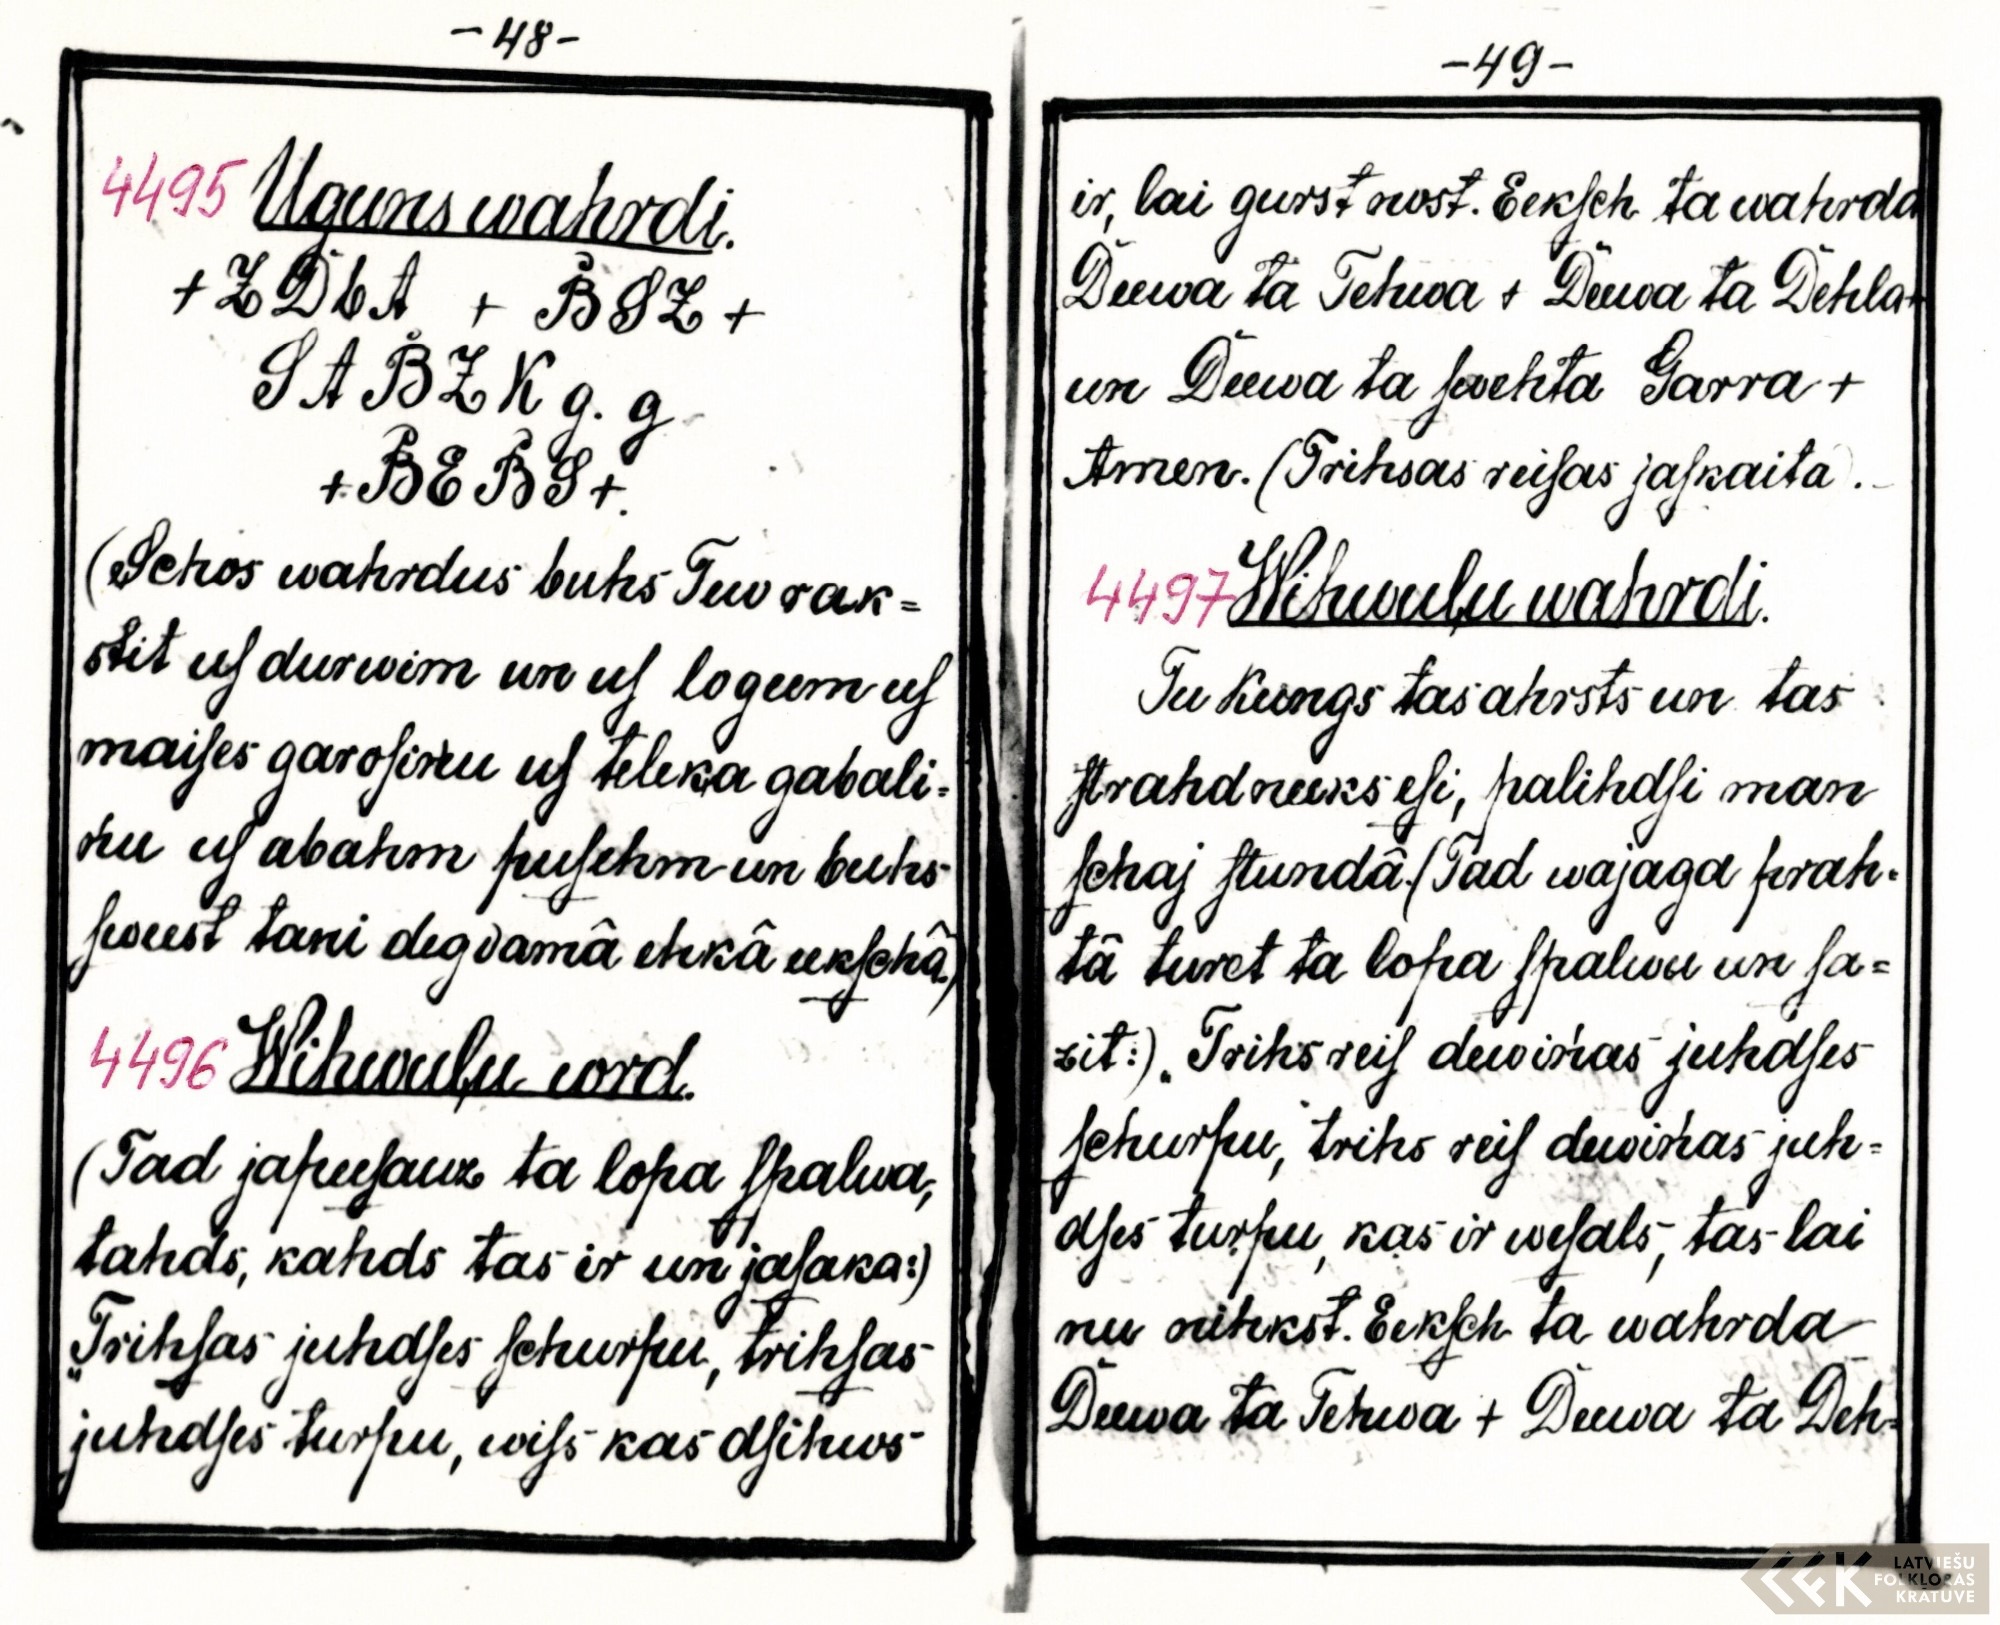 -48-
4495 Uguns wahrdi.
+ Z D b A + B S Z +
S A B Z K g. g
+ B E B S +.
(Schos wahrdus buhs Tew rak=
stit uſ durwim un uſ logeem uſ
maiſes garoſiņu uſ teleka gabali=
ņu uſ abahm puſehm un buhs
ſweest tani degoamâ ehkâ eekſchâ.)
4496 Wihwuļu word.
(Tad japeeſauz ta lopa ſpalwa,
tahds, kahds tas ir un jaſaka:)
„Trihſas juhdſes ſchurpu, trihſas
juhdſes turpu, wiſs kas dſihws
-49-
ir, lai gurst nost. Eekſch ta wahrda
Deewa ta Tehwa + Deewa ta Dehla +
un Deewa ta ſwehta Garra +
Amen. (Trihsas reiſas jaſkaita).
4497 Wihwuļu wahrdi.
Tu Kungs tas ahrsts un tas
ſtrahdneeks eſi, palihdſi man
ſchaj ſtundâ. (Tad wajaga prah=
tâ turet ta lopa ſpalwu un ſa=
zit:) „Trihs reiſ dewiņas juhdſes
ſchurpu, trihs reiſ dewiņas juh=
dſes turpu, kas ir weſals, tas lai
nu nihkst. Eekſch ta wahrda
Deewa ta Tehwa + Deewa ta Deh=
LATVIEŠU
FOLKLORAS
KRĀTUVE